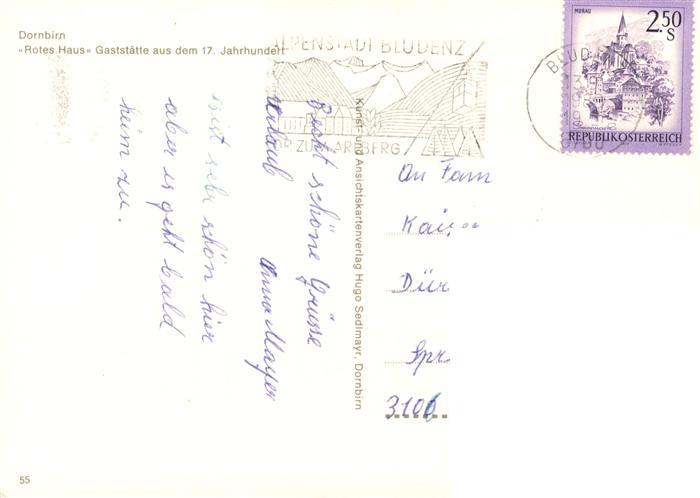 Dornbirn
»Rotes Haus« Gaststätte aus dem 17. Jahrhundert
ALPENSTADT BLUDENZ
TOR ZUM ARLBERG
MURAU
2.50
S
REPUBLIK ÖSTERREICH
6700
Recht schöne Grüsse
Urlaub Anna Mayer
ist sehr schön hier
aber es geht bald
heim zu.
Kunst- und Ansichtskartenverlag Hugo Sedlmayr, Dornbirn
An Fam
Kai
Dür
Spr
3106
55